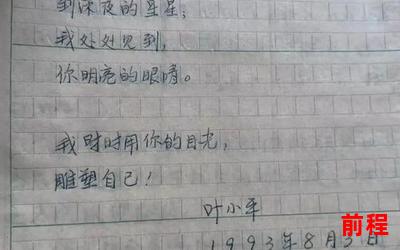 到深夜的星星；
我处处见到，
你明亮的眼睛。
我时时用你的目光，
雕塑自己！
叶小平
前程
1993年8月5日